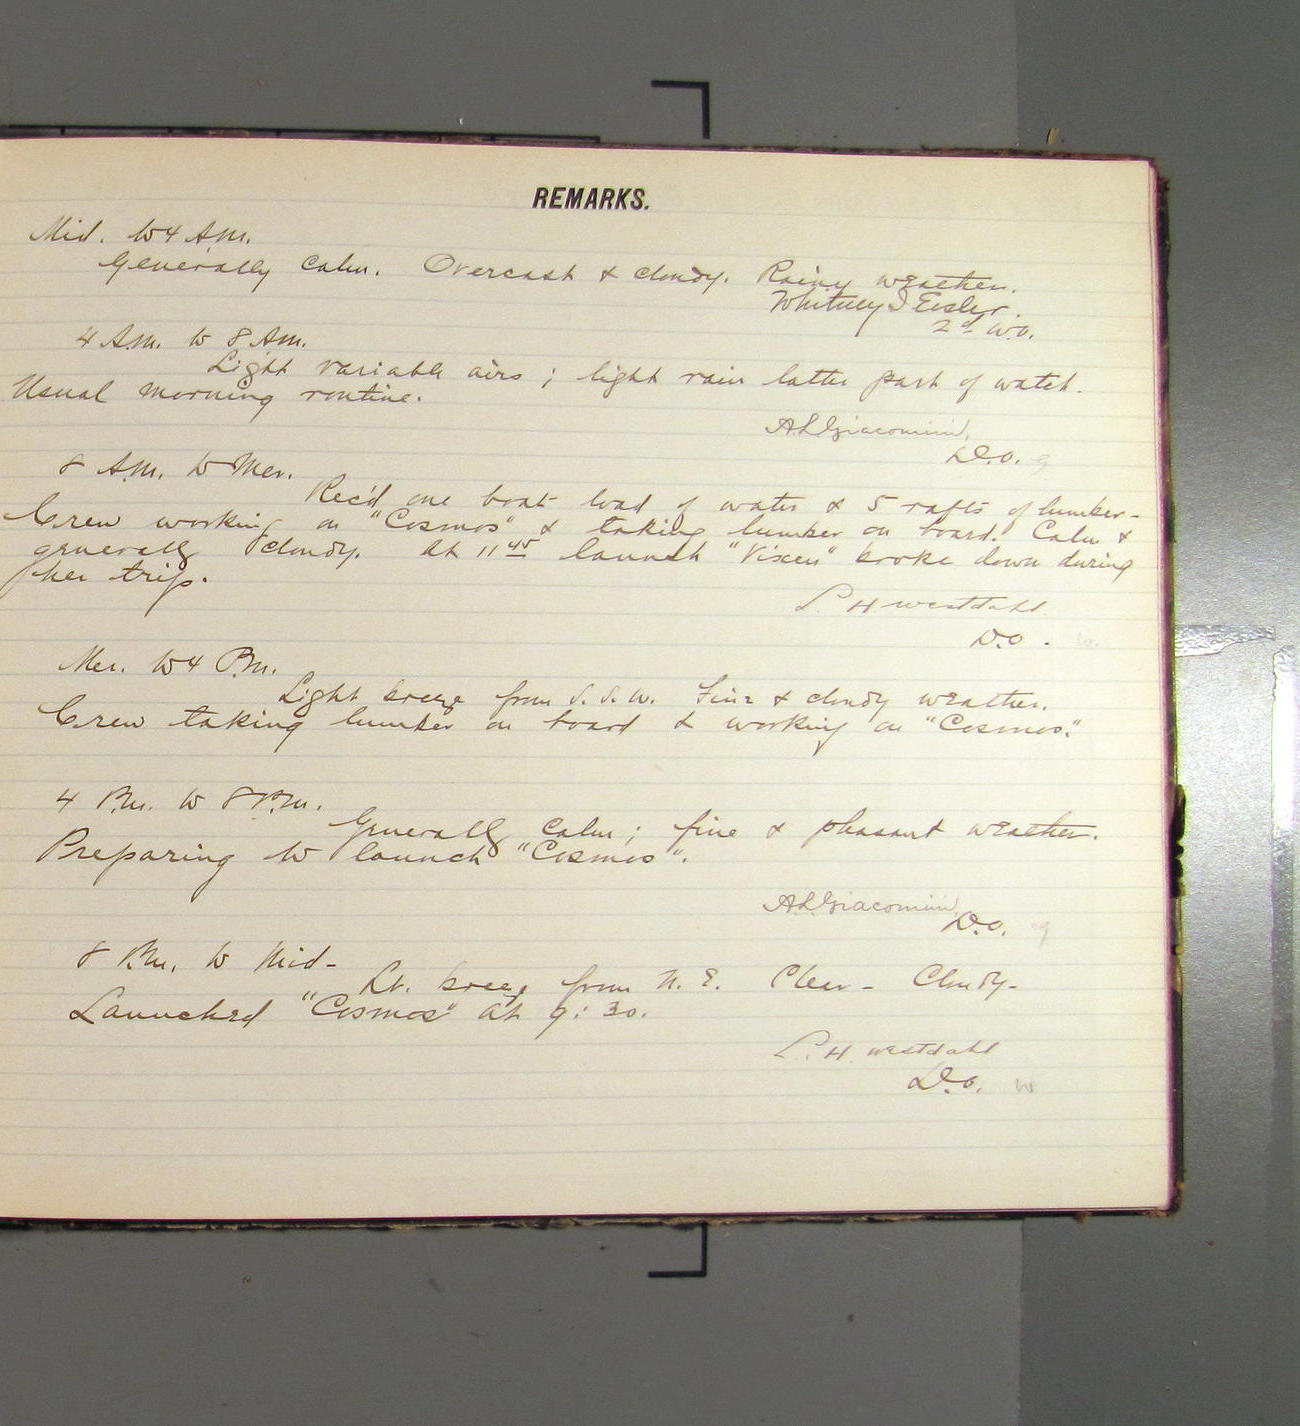 REMARKS.
Mid. to 4 A.M.
Generally calm. Overcast & cloudy. Rainy weather.
Whitney I Eisler.
2d W.O.
4 A.M. to 8 A.M.
Light variable airs; light rain latter part of watch.
Usual morning routine.
A.L. Giacomini,
D.O.
8 A.M. to Mer.
Rec'd one boat load of water & 5 rafts of lumber-
Crew working on "Cosmos" & taking lumber on board. Calm &
generally cloudy. At 11 45 launch "Vixen" broke down during
her trip.
L. H Westdahl
D.O.
Mer. to 4 P.M.
Light breeze from S.S.W. Fine & cloudy weather.
Crew taking lumber on board & working on "Cosmos."
4 P.M. to 8 P.M.
Generally calm; fine & pleasant weather.
Preparing to launch "Cosmos".
A.L. Giacomini
D.O.
8 P.M. to Mid-
Lt. breeze from N.E. Clear - Cloudy-
Launched "Cosmos" at 9:30.
L. H. Westdahl
D.O.